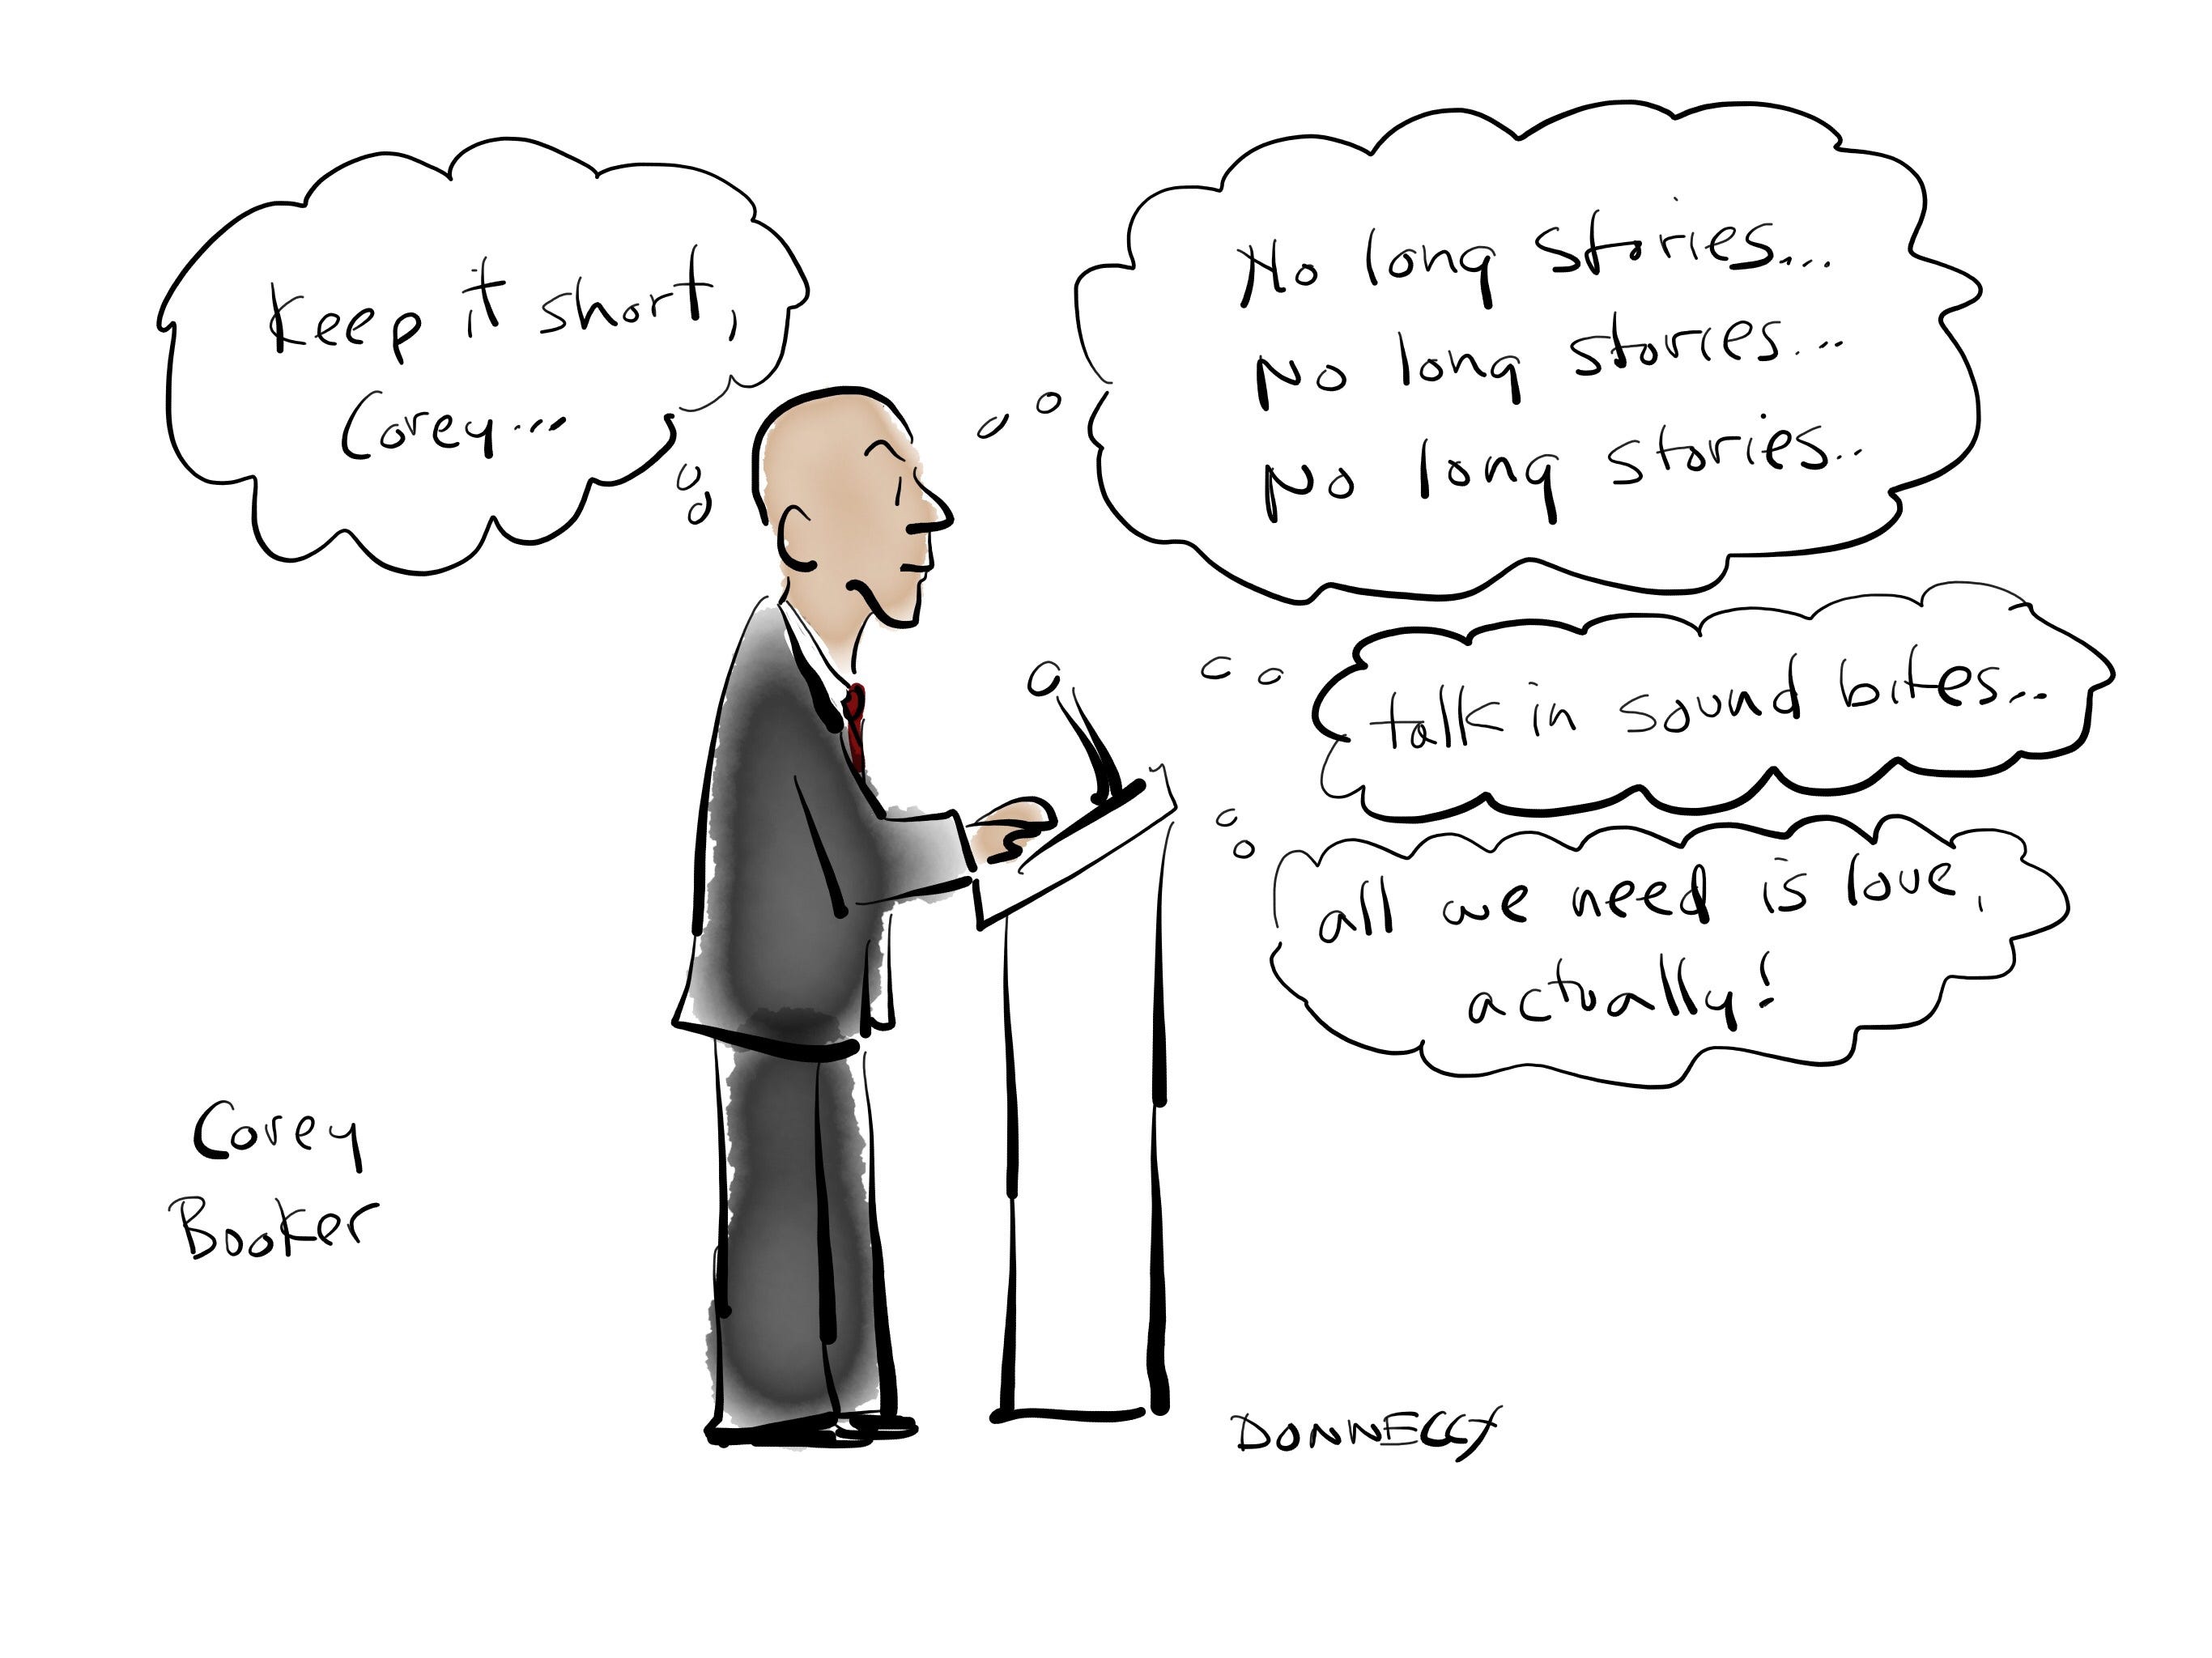 Keep it short,
Corey...
No long stories...
No long stories...
No long stories..
talk in sound bites...
all we need is love,
actually!
Corey
Booker
DONNELLY